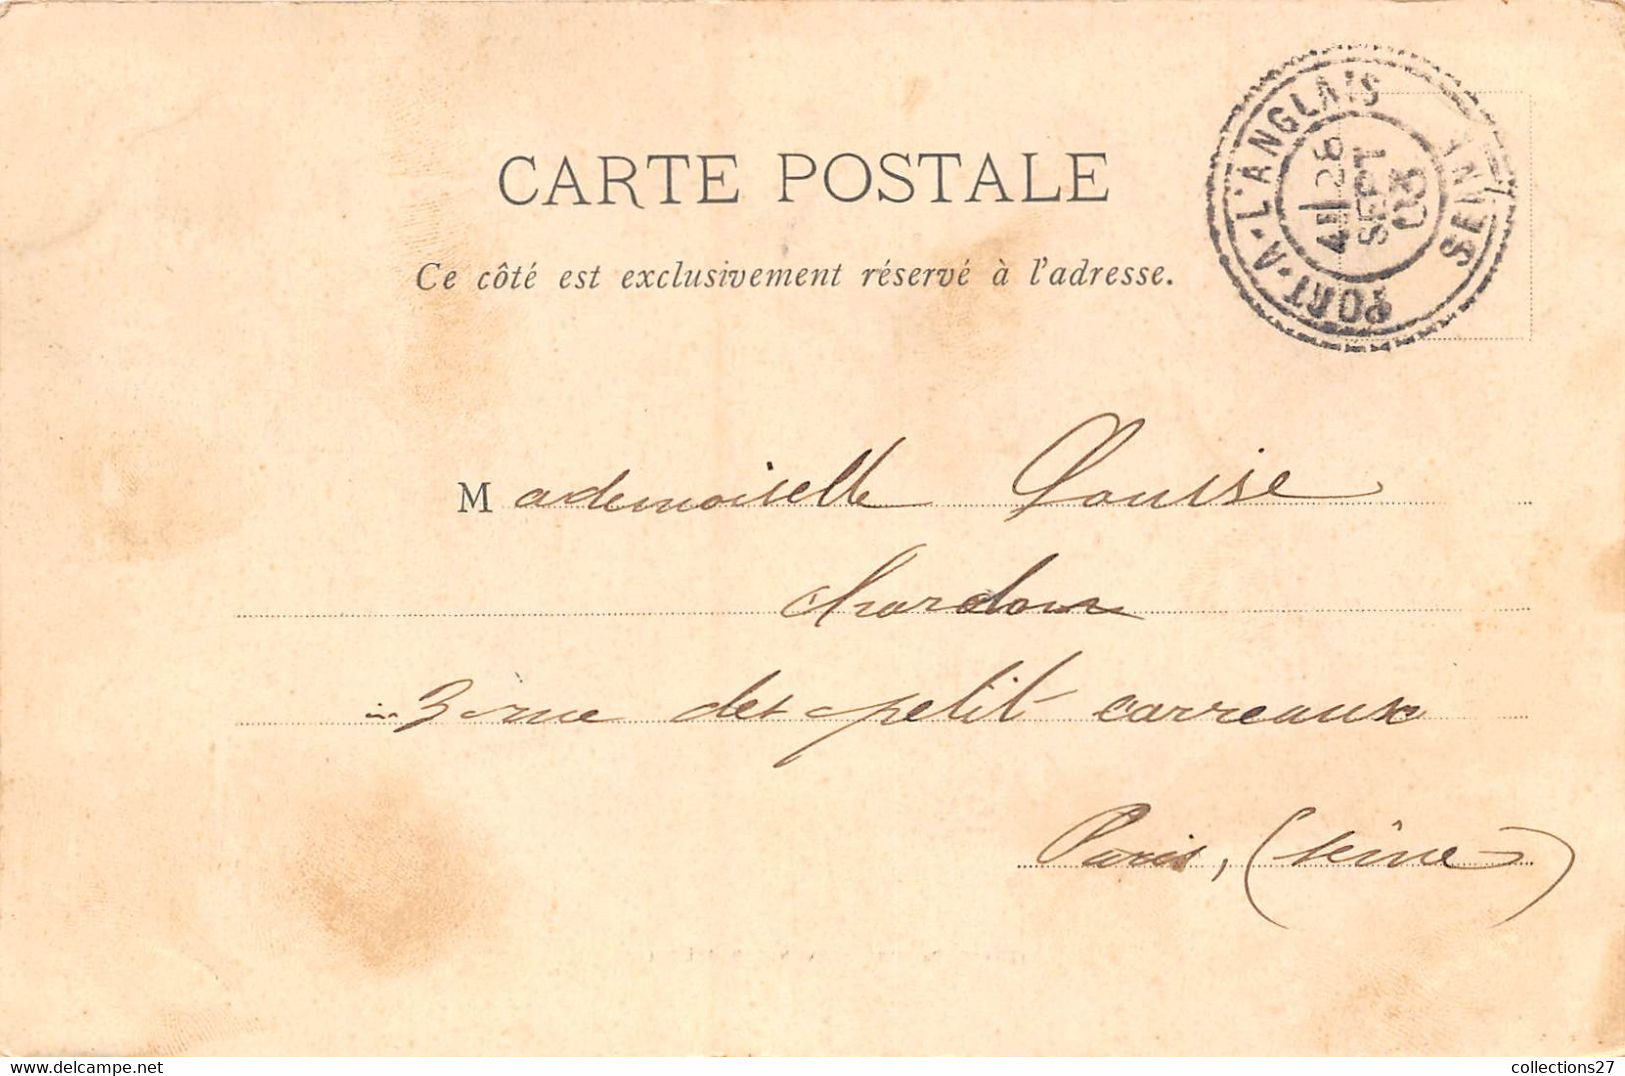 CARTE POSTALE
Ce côté est exclusivement réservé à l'adresse.
PORT-A-L'ANGLAIS
26
SEPT
03
SEINE
Mademoiselle Louise
Chardon
3 rue des petit carreaux
Paris, (Seine)
https://www.delcampe.net
collections27